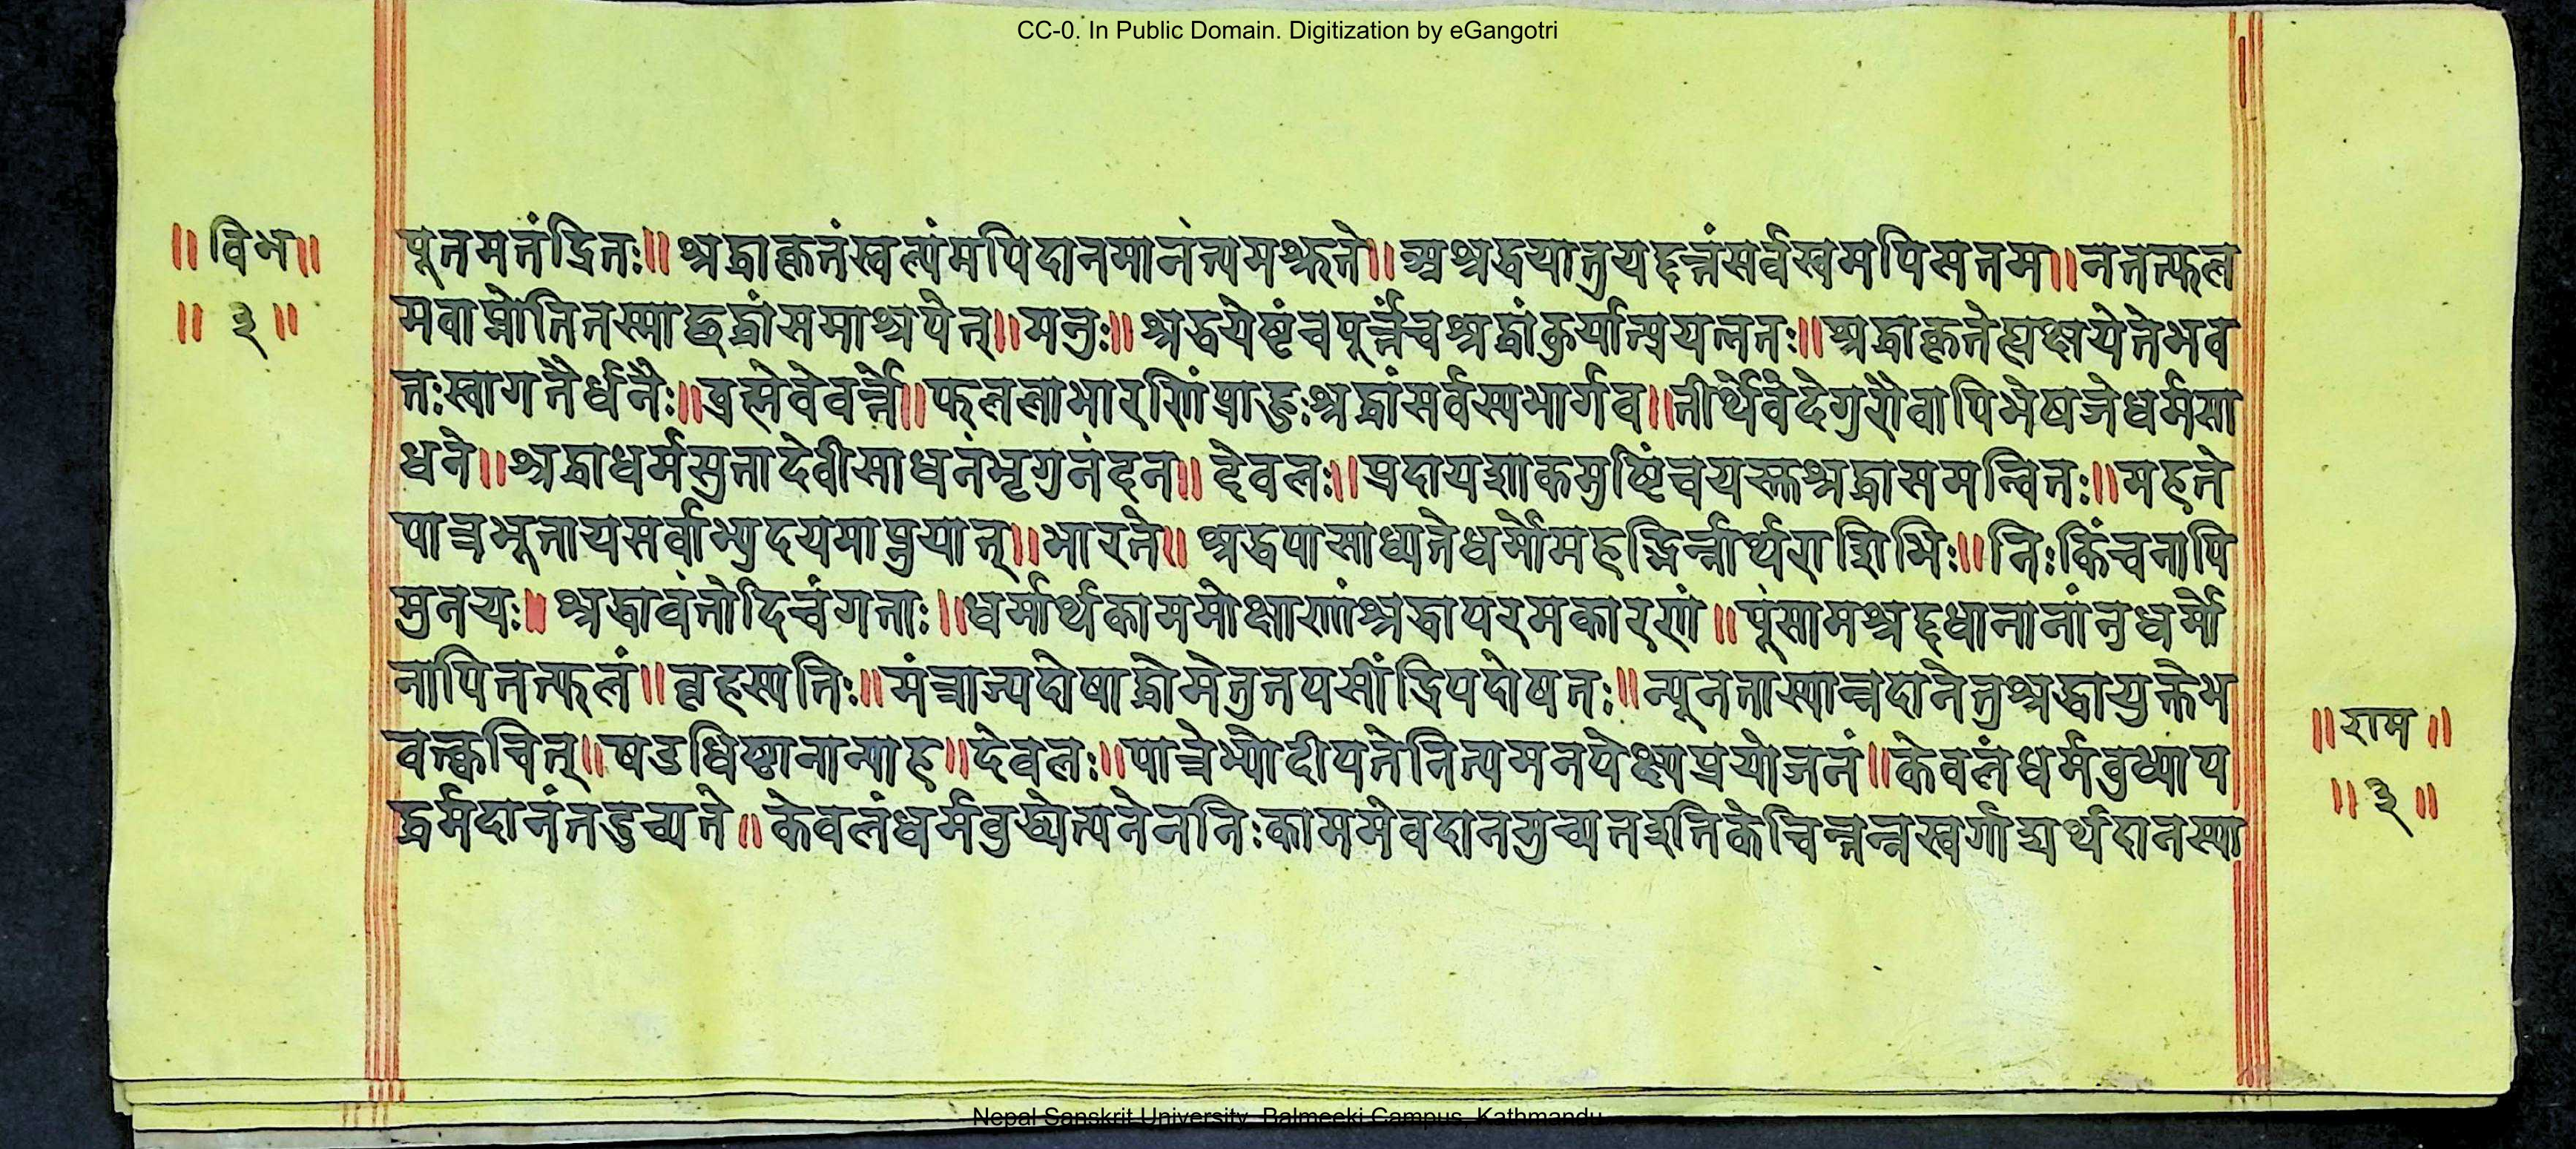 CC-0. In Public Domain. Digitization by eGangotri
॥ विभ॥
॥ ३ ॥
पूतमतंद्रितः॥ श्रद्धाकृतंस्वल्पंमपिदानमानंत्यमश्रुते॥ अश्रद्धयातुयद्दत्तंसर्वस्वमपिसत्तम॥ नतत्फल
मवाप्नोतितस्माछ्रद्धांसमाश्रयेत्॥ मनुः॥ श्रद्धयेष्टंचपूर्त्तंचश्रद्धांकुर्यात्प्रयत्नतः॥ श्रद्धाकृतेह्यक्षयेतेभव
तःस्वागतैर्धनैः॥ वह्निवेवर्त्ते॥ फललाभारणिंप्राहुःश्रद्धांसर्वस्यभार्गव॥ तीर्थेवेदेगुरौवापिभेषजेधर्मसा
धने॥ श्रद्धाधर्मसुतादेवीसाधनंभृगुनंदन॥ देवलः॥ प्रदायशाकमुष्टिंचयस्तुश्रद्धासमन्वितः॥ महते
पात्रभूतायसर्वाभ्युदयमाप्नुयात्॥ भारते॥ श्रद्धयासाध्यतेधर्मोमहद्भिर्न्नार्थराशिभिः॥ निःकिंचनापि
मुनयः॥ श्रद्धावंतोदिवंगताः॥ धर्मार्थकाममोक्षाणांश्रद्धापरमकारणं॥ पुंसामश्रद्दधानानांनुधर्मो
नापितत्फलं॥ बृहस्पतिः॥ मंत्राज्यदोषाद्धोमेतुतपसींद्रियदोषतः॥ न्यूनतास्यान्नदानेतुश्रद्धायुक्तेभ
वत्क्वचित्॥ षडधिष्ठानान्याह॥ देवलः॥ पात्रेभ्योदीयतेनित्यमनपेक्ष्यप्रयोजनं॥ केवलंधर्मवुध्याय
द्धर्मदानंतदुच्यते॥ केवलंधर्मवुद्ध्येत्यनेननिःकाममेवदानमुच्यतइतिकेचित्तन्नस्वर्गाद्यर्थदानस्या
॥ राम ॥
॥ ३ ॥
Nepal Sanskrit University, Balmeeki Campus, Kathmandu